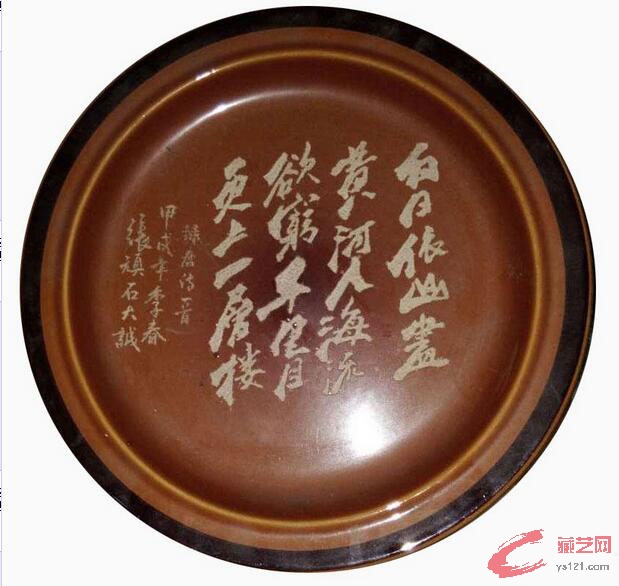 白日依山盡
黄河入海流
欲窮千里目
更上一層楼
録唐诗一首
甲戌年季春
張頑石大誠
藏艺网
ys121.com